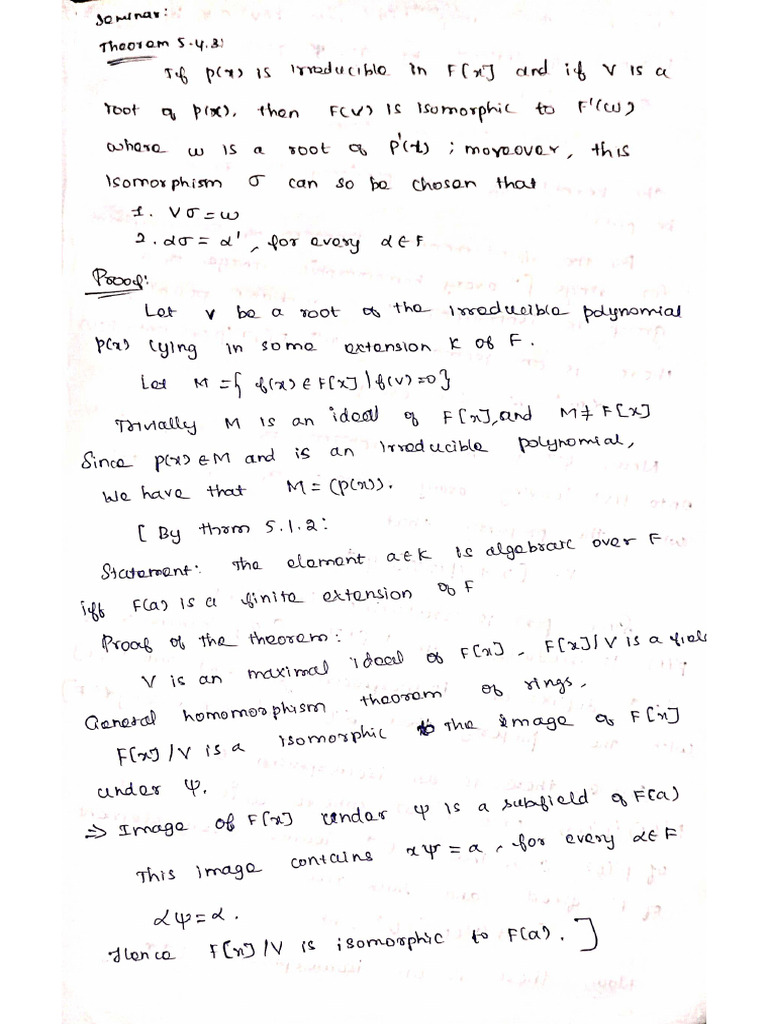 Seminar:
Theorem 5.4.3:
If p(x) is irreducible in F[x] and if V is a
root of p(x), then F(V) is isomorphic to F'(ω)
where ω is a root of p'(t) ; moreover, this
isomorphism σ can so be chosen that
1. Vσ = ω
2. ασ = α', for every α ∈ F
Proof:
Let v be a root of the irreducible polynomial
p(x) lying in some extension K of F.
Let M = { f(x) ∈ F[x] | f(v) = 0 }
Trivially M is an ideal of F[x], and M ≠ F[x]
Since p(x) ∈ M and is an irreducible polynomial,
We have that M = (p(x)).
[ By thrm 5.1.2:
Statement: The element a ∈ K is algebraic over F
iff F(a) is a finite extension of F
Proof of the theorem:
V is an maximal ideal of F[x]. F[x]/V is a field
General homomorphism theorem of rings.
F[x]/V is a isomorphic to the image of F[x]
under ψ.
⇒ Image of F[x] under ψ is a subfield of F(a)
This image contains xψ = a, for every α ∈ F
αψ = α.
Hence F[x]/V is isomorphic to F(a). ]